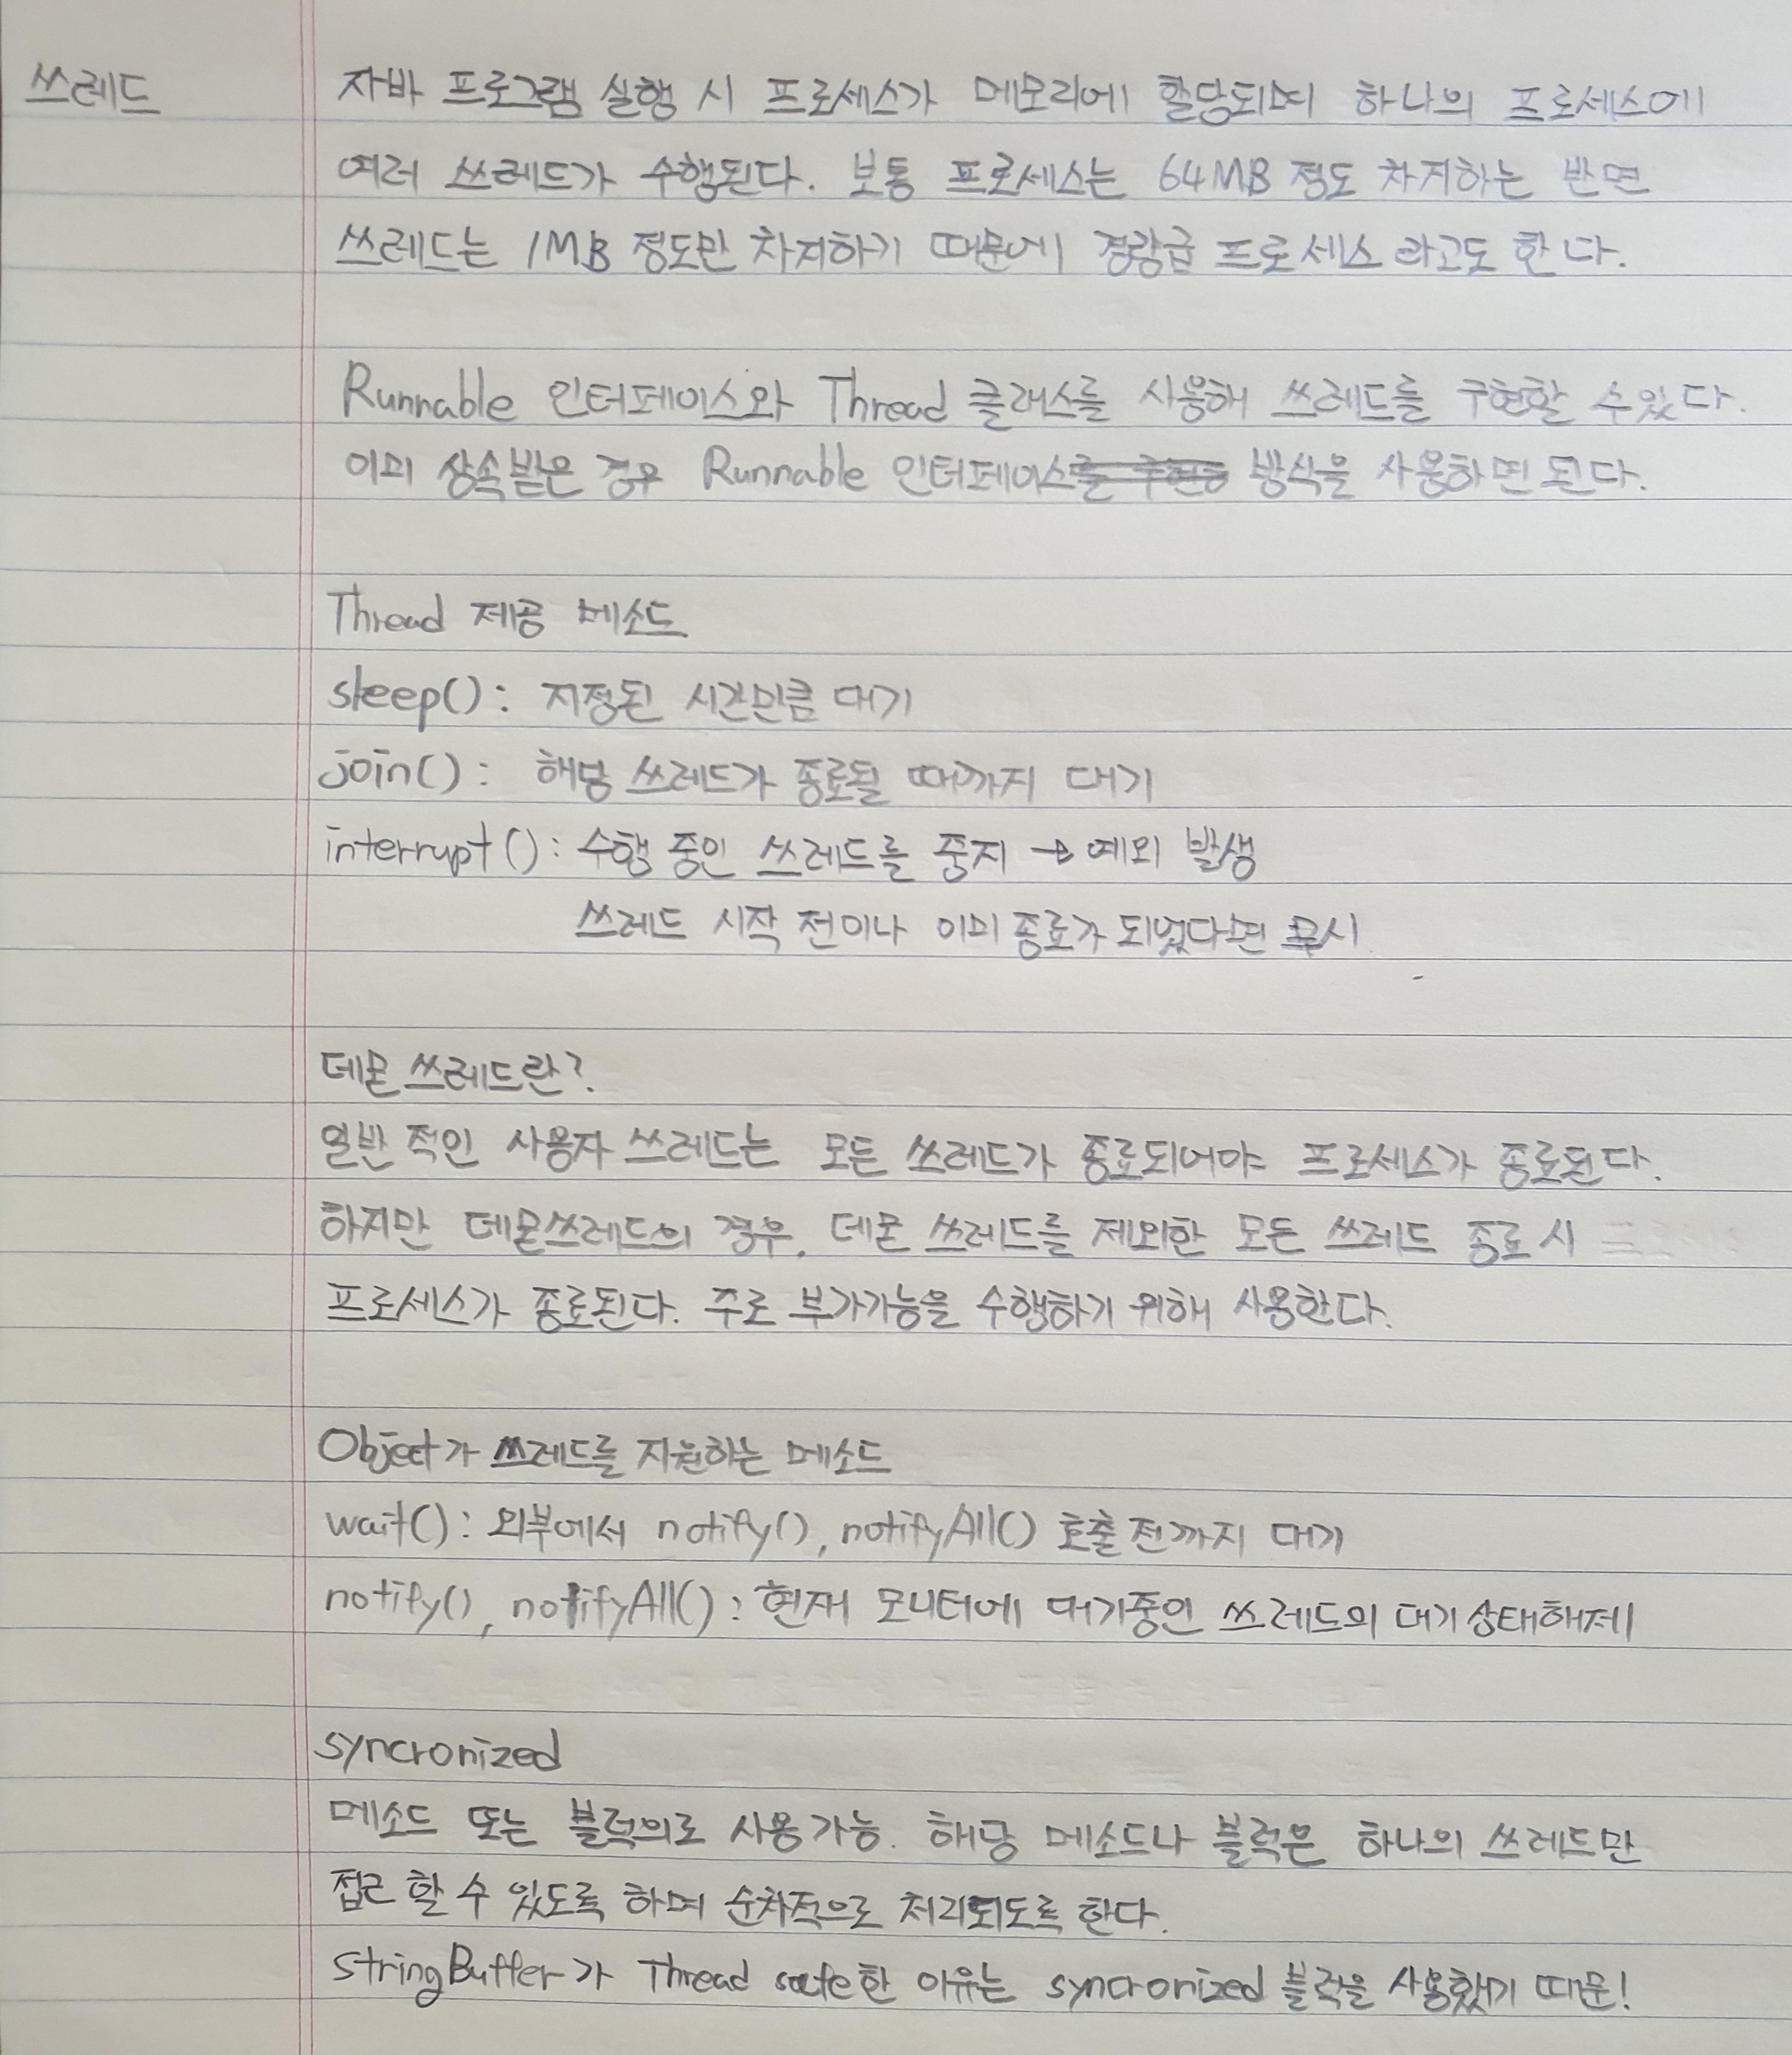 쓰레드
자바 프로그램 실행 시 프로세스가 메모리에 할당되며 하나의 프로세스에
여러 쓰레드가 수행된다. 보통 프로세스는 64MB 정도 차지하는 반면
쓰레드는 1MB 정도만 차지하기 때문에 경량급 프로세스 라고도 한다.
Runnable 인터페이스와 Thread 클래스를 사용해 쓰레드를 구현할 수 있다.
이미 상속받은 경우 Runnable 인터페이스 방식을 사용하면 된다.
Thread 제공 메소드
sleep(): 지정된 시간만큼 대기
join(): 해당 쓰레드가 종료될 때까지 대기
interrupt(): 수행 중인 쓰레드를 중지 → 예외 발생
쓰레드 시작 전이나 이미 종료가 되었다면 무시
데몬 쓰레드란?
일반적인 사용자 쓰레드는 모든 쓰레드가 종료되어야 프로세스가 종료된다.
하지만 데몬쓰레드의 경우, 데몬 쓰레드를 제외한 모든 쓰레드 종료 시
프로세스가 종료된다. 주로 부가기능을 수행하기 위해 사용한다.
Object가 쓰레드를 지원하는 메소드
wait(): 외부에서 notify(), notifyAll() 호출 전까지 대기
notify(), notifyAll(): 현재 모니터에 대기중인 쓰레드의 대기상태해제
syncronized
메소드 또는 블럭의로 사용가능. 해당 메소드나 블럭은 하나의 쓰레드만
접근 할 수 있도록 하며 순차적으로 처리되도록 한다.
StringBuffer가 Thread safe한 이유는 syncronized 블럭을 사용했기 때문!